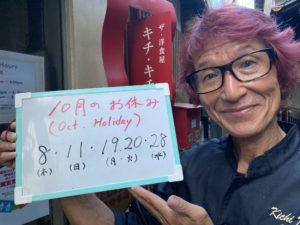 Hours
ザ・洋食屋
キチ・キチ
10月のお休み
(Oct. Holiday)
8・11・19.20・28
(木) (日) (月・火) (水)
Kichi